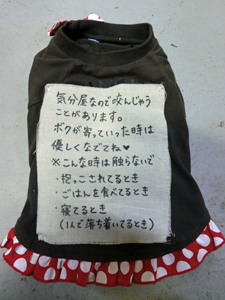 気分屋なので咬んじゃう
ことがあります。
ボクが寄っていった時は
優しくなでてね♥
※こんな時は触らないで
・抱っこされてるとき
・ごはんを食べてるとき
・寝てるとき
(1人で落ち着いてるとき)